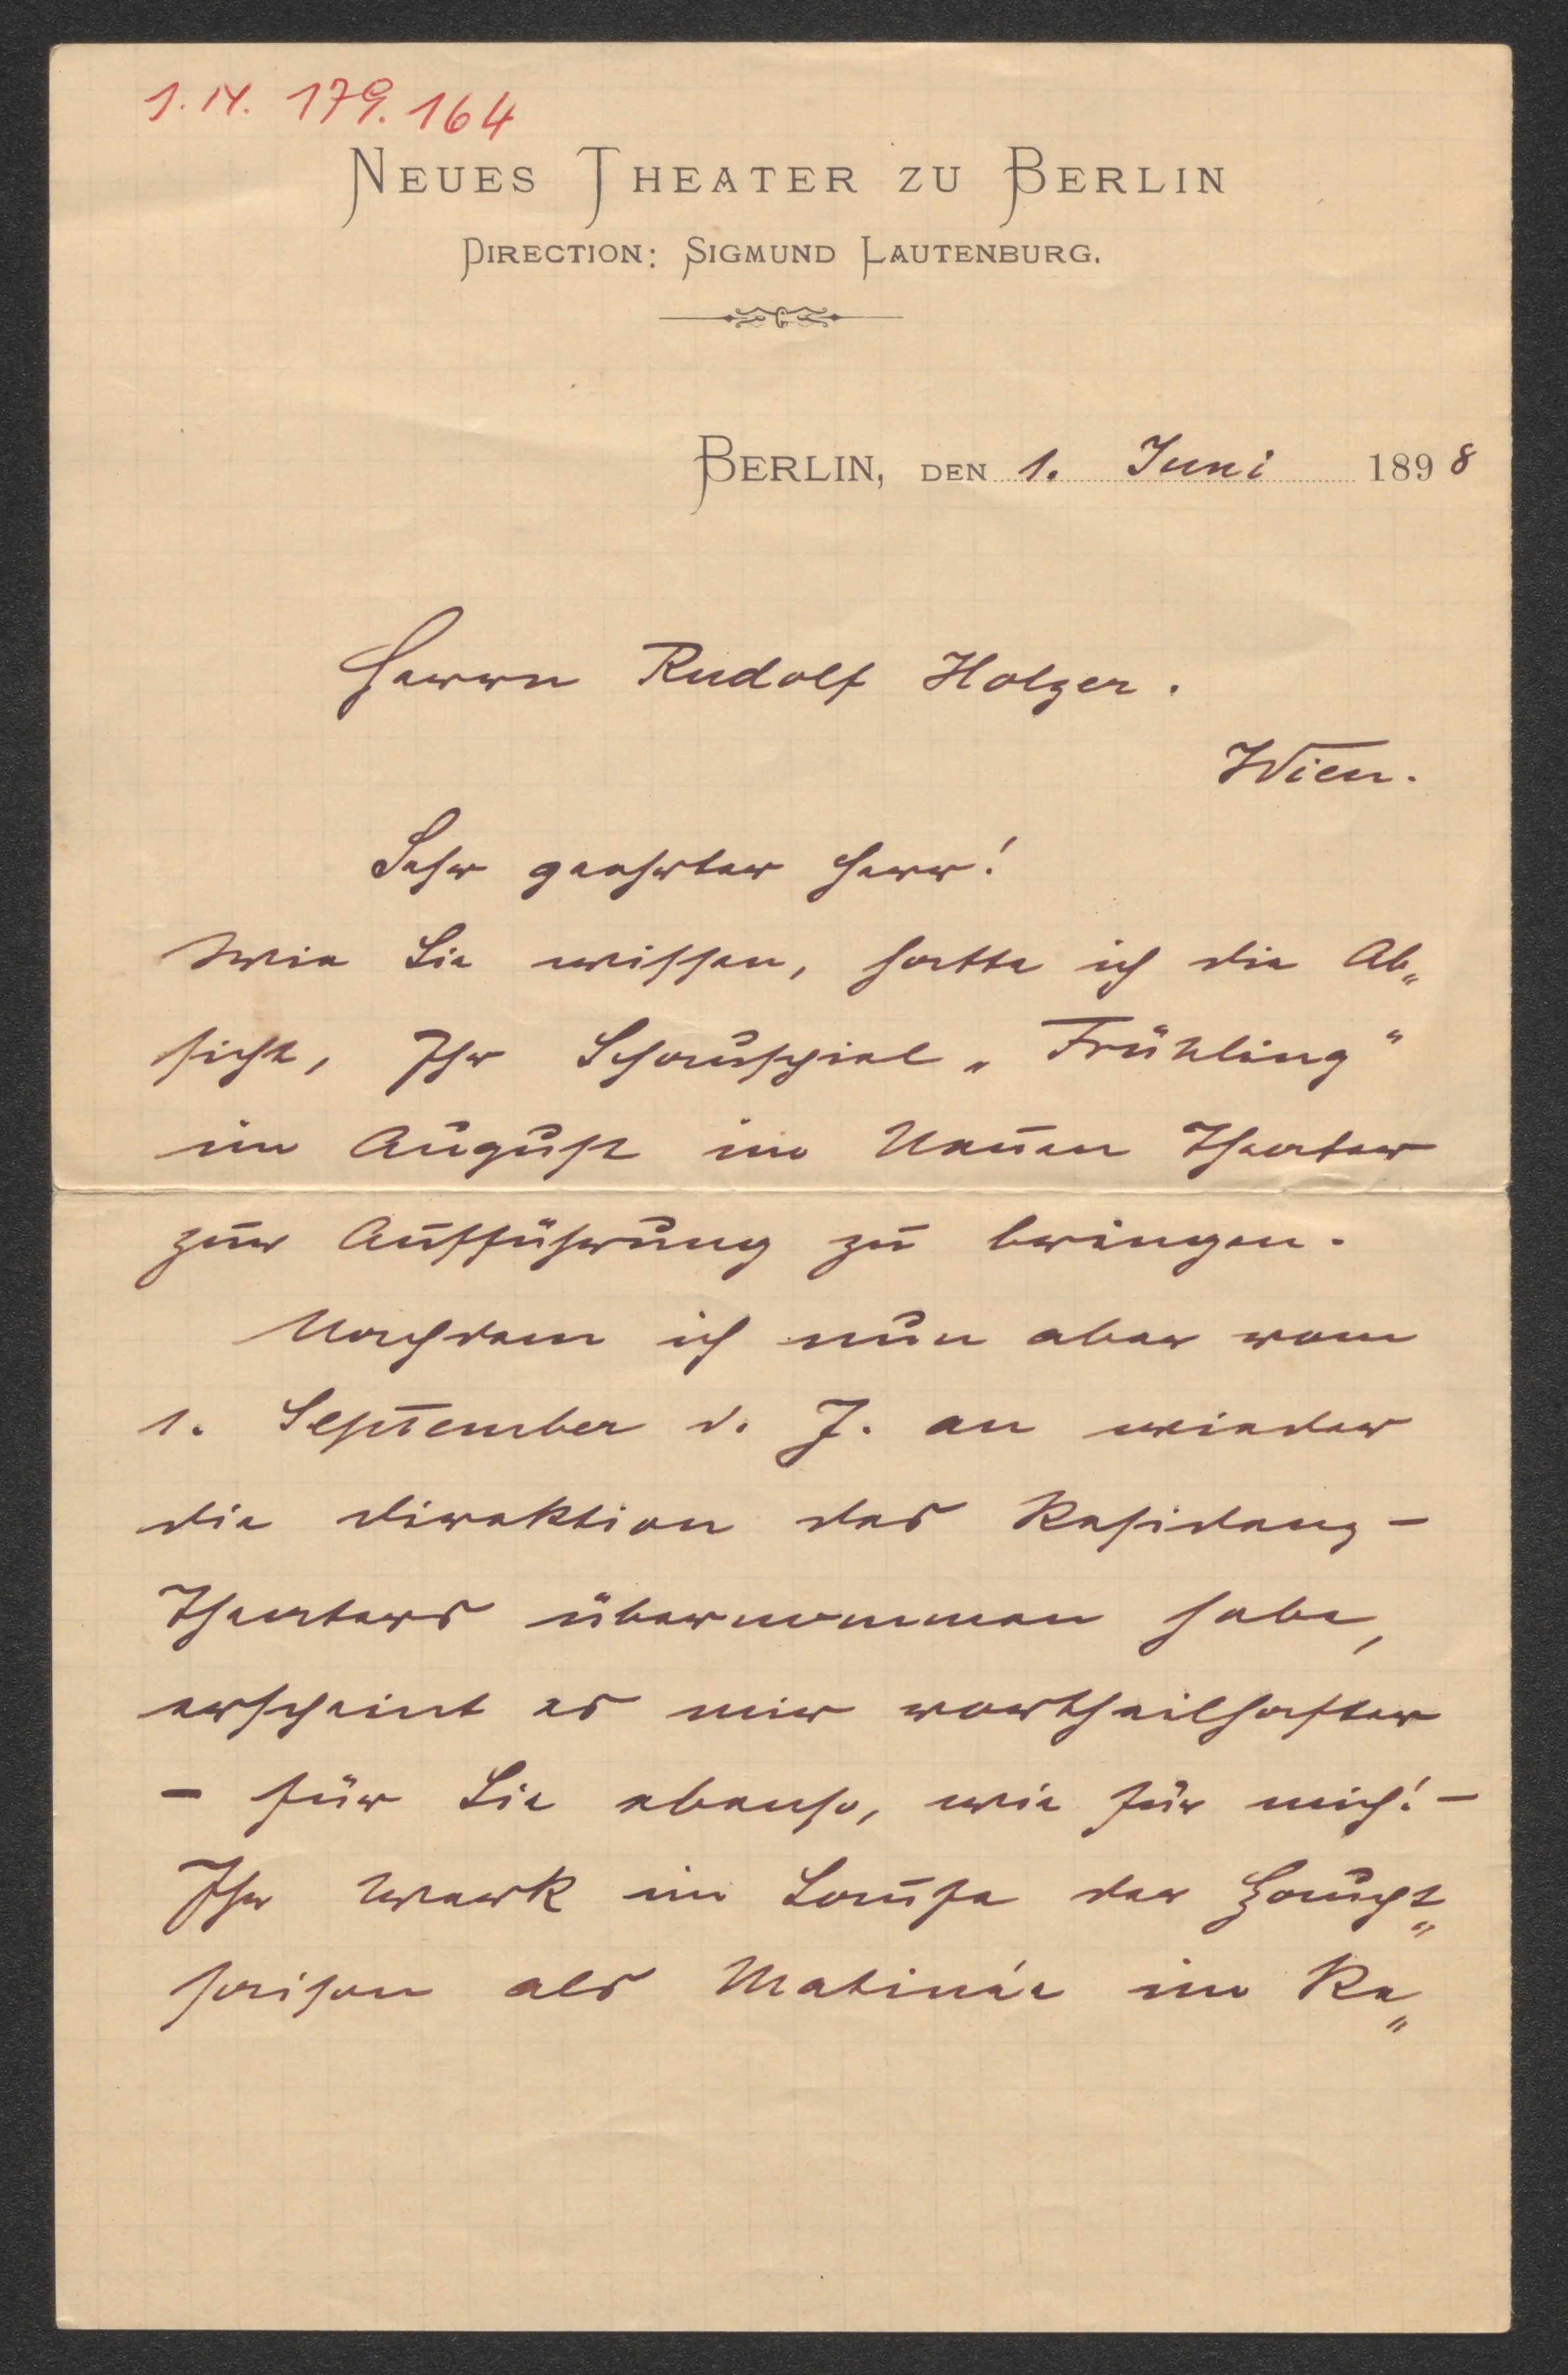 1. N. 179.164
NEUES THEATER ZU BERLIN
DIRECTION: SIGMUND LAUTENBURG.
BERLIN, DEN 1. Juni 1898
Herrn Rudolf Holzer.
Wien.
Sehr geehrter Herr!
Wie Sie wissen, hatte ich die Ab„
sicht, Ihr Schauspiel „Frühling“
im August im Neuen Theater
zur Aufführung zu bringen.
Nachdem ich nun aber vom
1. September d. J. an wieder
die Direktion des Residenz-
Theaters übernommen habe,
erscheint es mir vortheilhafter
– für Sie ebenso, wie für mich! –
Ihr Werk im Laufe der Haupt„
saison als Matinée im Re„